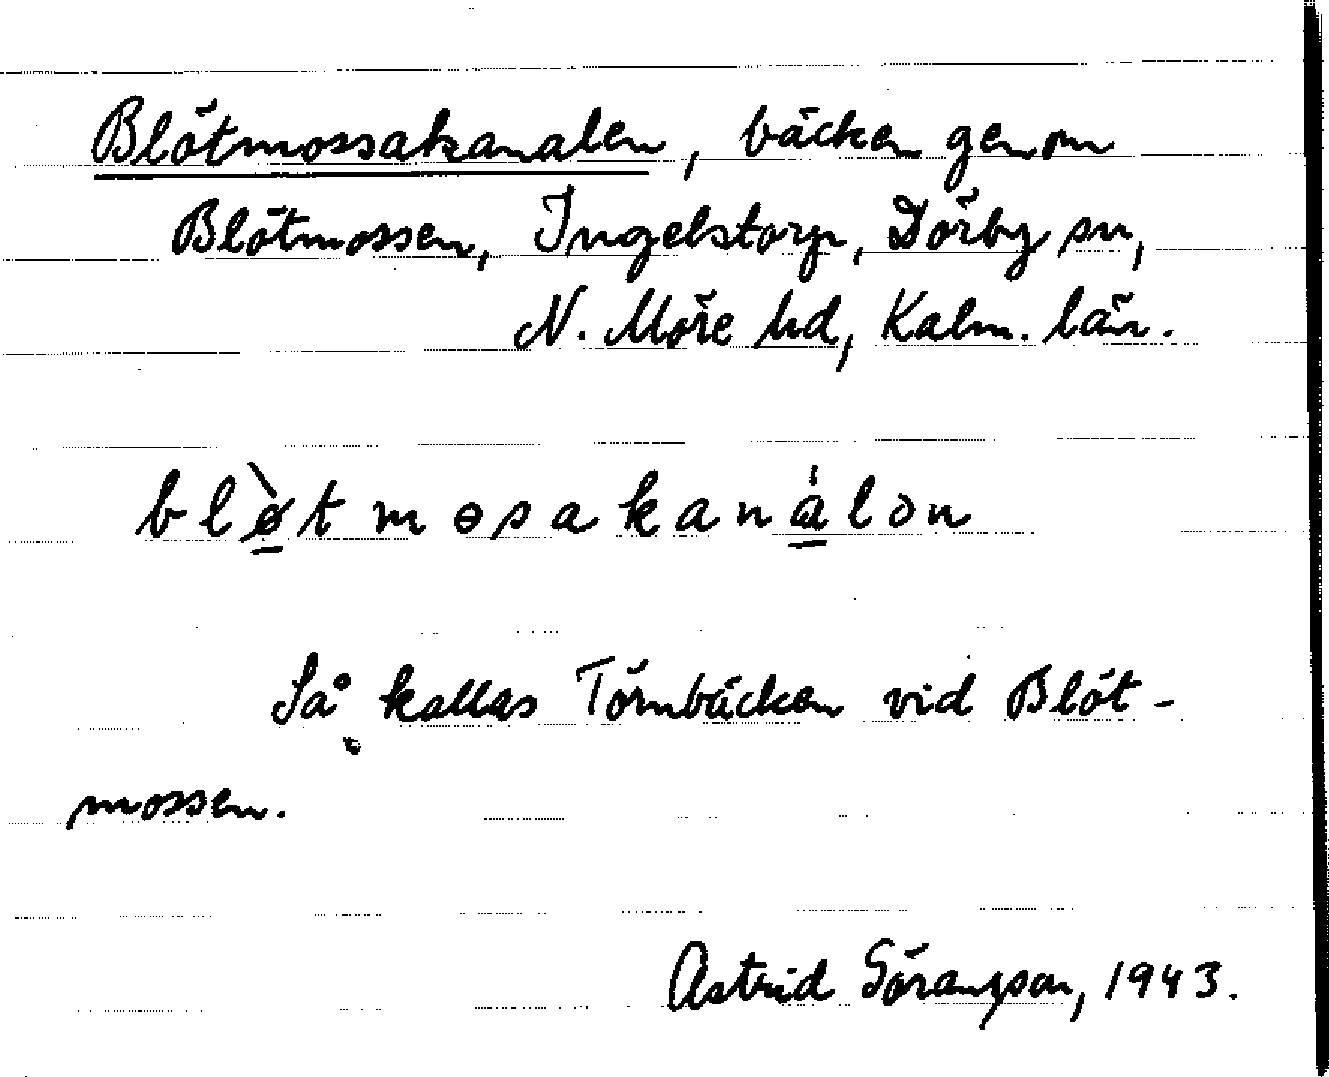 Blötmossakanalen, bäcken genom
Blötmossen, Ingelstorp, Dörby sn,
N. Möre hd, Kalm. län.
blø̀tmɵsakanálən
Så kallas Törnbäcken vid Blöt-
mossen.
Astrid Göransson, 1943.